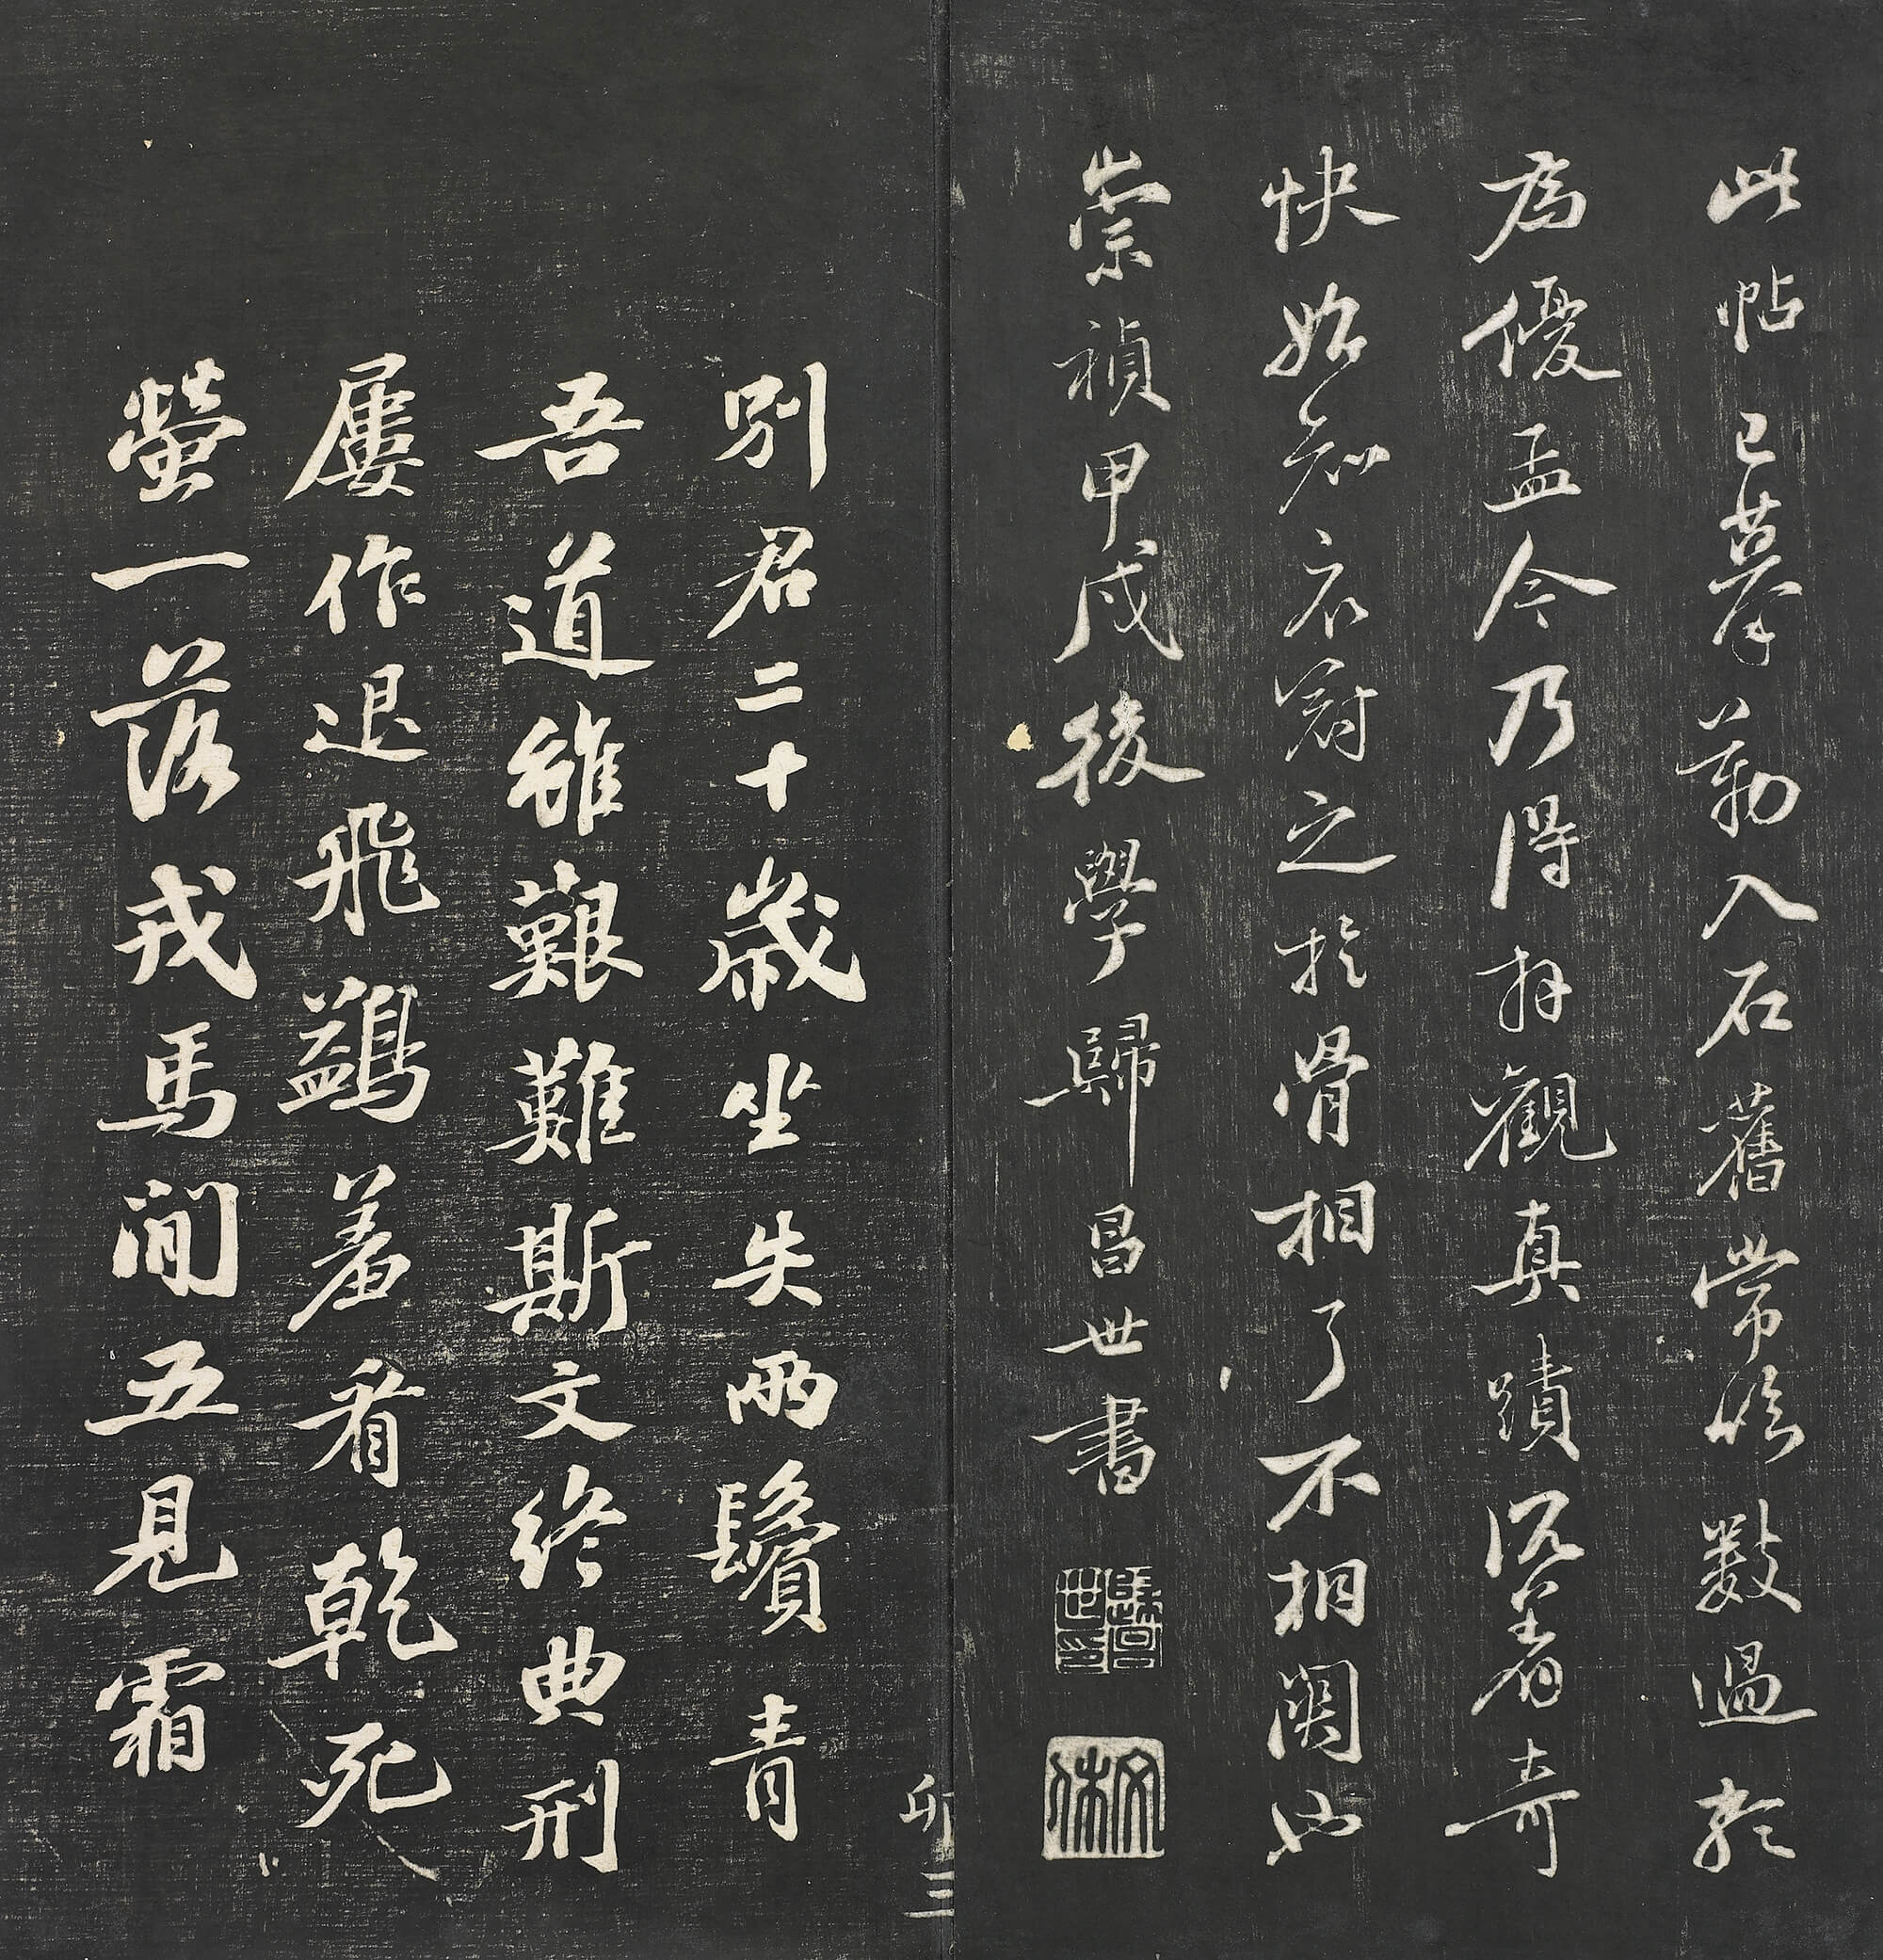 此帖已摹勒入石舊常臨數過於
為優孟今乃得拜觀真蹟沉着奇
快始知衣冠之於骨相了不相關也
崇禎甲戌後學歸昌世書
昌世
文休
卯三
別君二十歲坐失兩鬢青
吾道雖艱難斯文終典刑
屢作退飛鷁羞看乾死
螢一落戎馬間五見霜